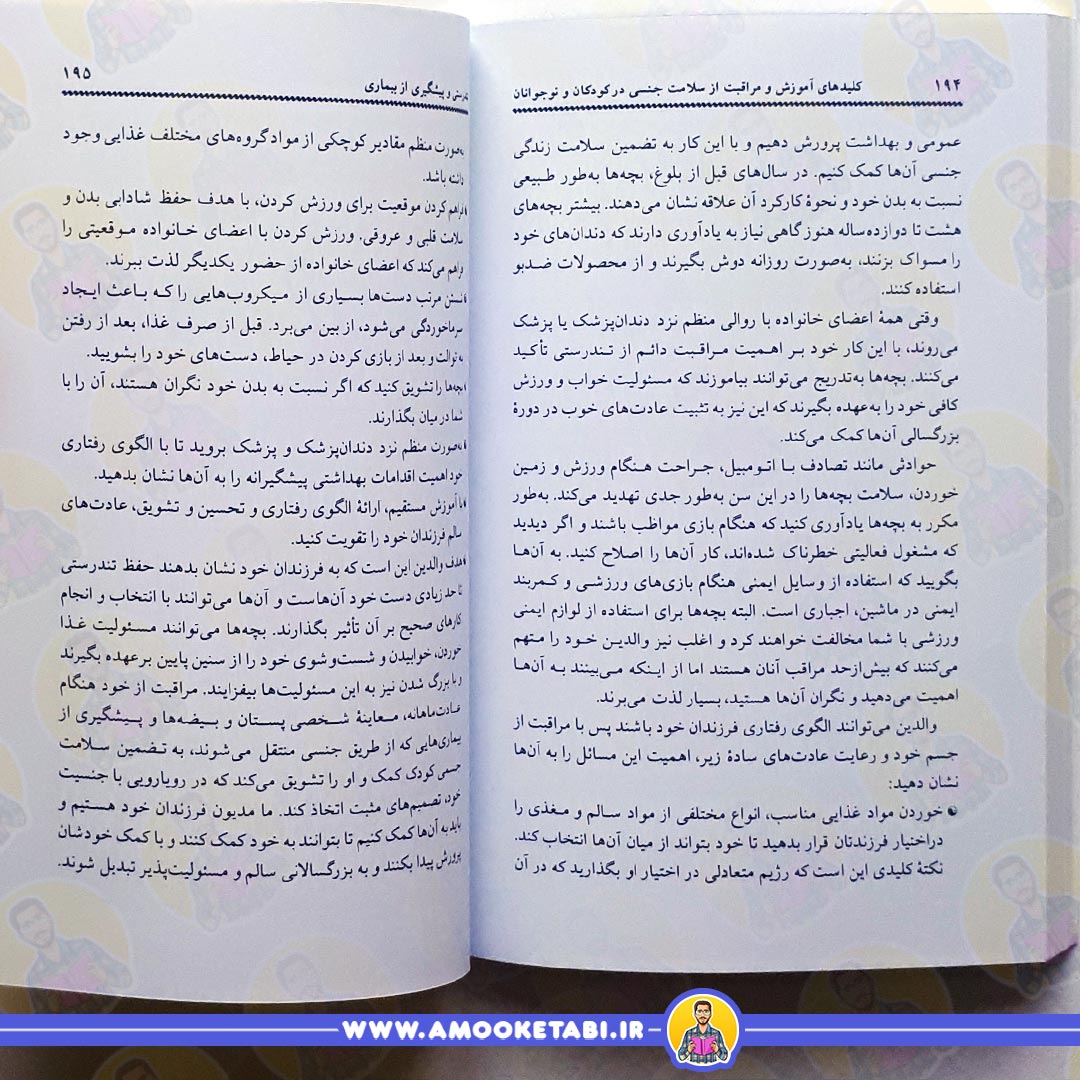 ۱۹۴ کلیدهای آموزش و مراقبت از سلامت جنسی در کودکان و نوجوانان
عمومی و بهداشت پرورش دهیم و با این کار به تضمین سلامت زندگی
جنسی آن‌ها کمک کنیم. در سال‌های قبل از بلوغ، بچه‌ها به‌طور طبیعی
نسبت به بدن خود و نحوهٔ کارکرد آن علاقه نشان می‌دهند. بیشتر بچه‌های
هشت تا دوازده‌ساله هنوز گاهی نیاز به یادآوری دارند که دندان‌های خود
را مسواک بزنند، به‌صورت روزانه دوش بگیرند و از محصولات ضدبو
استفاده کنند.
وقتی همهٔ اعضای خانواده با روالی منظم نزد دندان‌پزشک یا پزشک
می‌روند، با این کار خود بر اهمیت مراقبت دائم از تندرستی تأکید
می‌کنند. بچه‌ها به‌تدریج می‌توانند بیاموزند که مسئولیت خواب و ورزش
کافی خود را به‌عهده بگیرند که این نیز به تثبیت عادت‌های خوب در دورهٔ
بزرگسالی آن‌ها کمک می‌کند.
حوادثی مانند تصادف با اتومبیل، جراحت هنگام ورزش و زمین
خوردن، سلامت بچه‌ها را در این سن به‌طور جدی تهدید می‌کند. به‌طور
مکرر به بچه‌ها یادآوری کنید که هنگام بازی مواظب باشند و اگر دیدید
که مشغول فعالیتی خطرناک شده‌اند، کار آن‌ها را اصلاح کنید. به آن‌ها
بگویید که استفاده از وسایل ایمنی هنگام بازی‌های ورزشی و کمربند
ایمنی در ماشین، اجباری است. البته بچه‌ها برای استفاده از لوازم ایمنی
ورزشی با شما مخالفت خواهند کرد و اغلب نیز والدین خود را متهم
می‌کنند که بیش‌ازحد مراقب آنان هستند اما از اینکه می‌بینند به آن‌ها
اهمیت می‌دهید و نگران آن‌ها هستید، بسیار لذت می‌برند.
والدین می‌توانند الگوی رفتاری فرزندان خود باشند پس با مراقبت از
جسم خود و رعایت عادت‌های سادهٔ زیر، اهمیت این مسائل را به آن‌ها
نشان دهید:
خوردن مواد غذایی مناسب، انواع مختلفی از مواد سالم و مغذی را
دراختیار فرزندتان قرار بدهید تا خود بتواند از میان آن‌ها انتخاب کند.
نکتهٔ کلیدی این است که رژیم متعادلی در اختیار او بگذارید که در آن
و پیشگیری از بیماری ۱۹۵
به‌صورت منظم مقادیر کوچکی از مواد گروه‌های مختلف غذایی وجود
داشته باشد.
• فراهم کردن موقعیت برای ورزش کردن، با هدف حفظ شادابی بدن و
سلامت قلبی و عروقی. ورزش کردن با اعضای خانواده موقعیتی را
فراهم می‌کند که اعضای خانواده از حضور یکدیگر لذت ببرند.
• شستن مرتب دست‌ها بسیاری از میکروب‌هایی را که باعث ایجاد
سرماخوردگی می‌شود، از بین می‌برد. قبل از صرف غذا، بعد از رفتن
به توالت و بعد از بازی کردن در حیاط، دست‌های خود را بشویید.
• بچه‌ها را تشویق کنید که اگر نسبت به بدن خود نگران هستند، آن را با
شما در میان بگذارند.
• به‌صورت منظم نزد دندان‌پزشک و پزشک بروید تا با الگوی رفتاری
خود اهمیت اقدامات بهداشتی پیشگیرانه را به آن‌ها نشان بدهید.
• با آموزش مستقیم، ارائهٔ الگوی رفتاری و تحسین و تشویق، عادت‌های
سالم فرزندان خود را تقویت کنید.
• هدف والدین این است که به فرزندان خود نشان بدهند حفظ تندرستی
تا حد زیادی دست خود آن‌هاست و آن‌ها می‌توانند با انتخاب و انجام
کارهای صحیح بر آن تأثیر بگذارند. بچه‌ها می‌توانند مسئولیت غذا
خوردن، خوابیدن و شست‌وشوی خود را از سنین پایین برعهده بگیرند
و با بزرگ شدن نیز به این مسئولیت‌ها بیفزایند. مراقبت از خود هنگام
عادت‌ماهانه، معاینهٔ شخصی پستان و بیضه‌ها و پیشگیری از
بیماری‌هایی که از طریق جنسی منتقل می‌شوند، به تضمین سلامت
جسمی کودک کمک و او را تشویق می‌کند که در رویارویی با جنسیت
خود، تصمیم‌های مثبت اتخاذ کند. ما مدیون فرزندان خود هستیم و
باید به آن‌ها کمک کنیم تا بتوانند به خود کمک کنند و با کمک خودشان
پرورش پیدا بکنند و به بزرگسالانی سالم و مسئولیت‌پذیر تبدیل شوند.
WWW.AMOOKETABI.IR